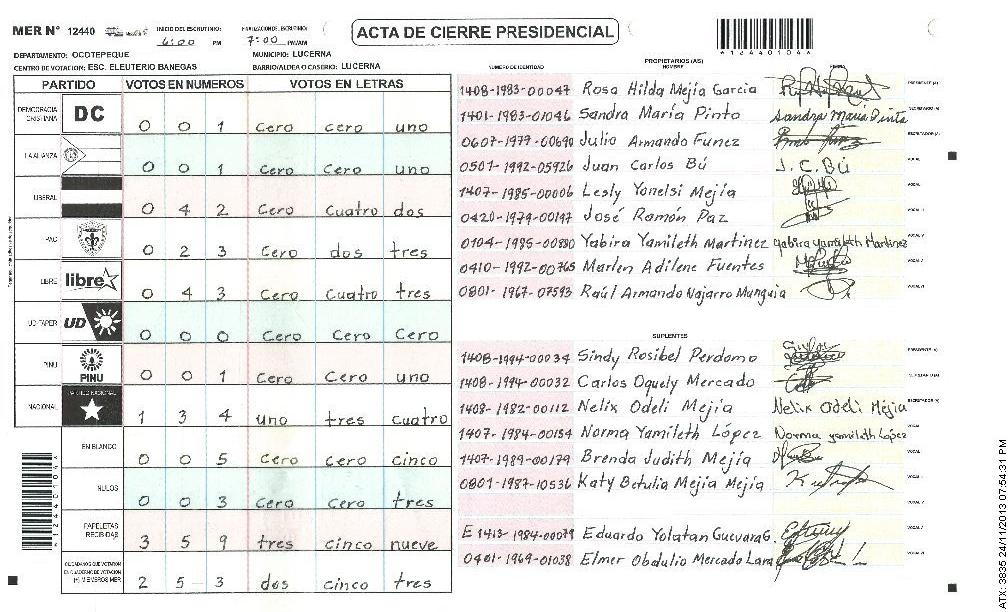 MER Nº 12440 INICIO DEL ESCRUTINIO: 6:00 PM FINALIZACION DEL ESCRUTINIO: 7:00 PM/AM
ACTA DE CIERRE PRESIDENCIAL
*12440104*
DEPARTAMENTO: OCOTEPEQUE MUNICIPIO: LUCERNA
CENTRO DE VOTACION: ESC. ELEUTERIO BANEGAS BARRIO/ALDEA O CASERIO: LUCERNA
PARTIDO VOTOS EN NUMEROS VOTOS EN LETRAS
DEMOCRACIA CRISTIANA DC 0 0 1 cero cero uno
LA ALIANZA 0 0 1 Cero Cero uno
LIBERAL 0 4 2 Cero Cuatro dos
PAC 0 2 3 Cero dos tres
LIBRE libre 0 4 3 Cero Cuatro tres
UD-FAPER UD 0 0 0 Cero Cero Cero
PINU PINU 0 0 1 Cero Cero uno
NACIONAL PARTIDO NACIONAL 1 3 4 uno tres cuatro
EN BLANCO 0 0 5 Cero Cero cinco
NULOS 0 0 3 Cero Cero tres
PAPELETAS RECIBIDAS 3 5 9 tres cinco nueve
CIUDADANOS QUE VOTARON EN CUADERNO DE VOTACION (+) MIEMBROS MER 2 5 - 3 dos cinco tres
*12440104*
PROPIETARIOS (AS)
NUMERO DE IDENTIDAD NOMBRE FIRMA
1408-1983-00047 Rosa Hilda Mejía Garcia PRESIDENTE (A)
1401-1983-01046 Sandra María Pinto Sandra Maria Pinto SECRETARIO (A)
0607-1977-00690 Julio Armando Funez ESCRUTADOR (A)
0501-1992-05926 Juan Carlos Bú J.C.BÚ VOCAL
1407-1985-00006 Lesly Yonelsi Mejía VOCAL
0420-1979-00197 José Ramón Paz VOCAL
0104-1985-00880 Yabira Yamileth Martinez Yabira Yamileth Martinez VOCAL
0410-1992-00765 Marlen Adilene Fuentes VOCAL
0801-1967-07593 Raúl Armando Najarro Munguia
SUPLENTES
1408-1994-00034 Sindy Rosibel Perdomo PRESIDENTE (A)
1408-1994-00032 Carlos Oquely Mercado SECRETARIO (A)
1408-1982-00112 Nelix Odeli Mejía Nelix Odeli Mejia ESCRUTADOR (A)
1407-1984-00154 Norma Yamileth López Norma yamileth López VOCAL
1407-1989-00179 Brenda Judith Mejía VOCAL
0801-1987-10536 Katy Betulia Mejia Mejia VOCAL
E 1413-1984-00079 Eduardo Yolatan Guevara G. VOCAL
0401-1969-01038 Elmer Obdulio Mercado Lara VOCAL
ATX: 3835 24/11/2013 07:54:31 PM